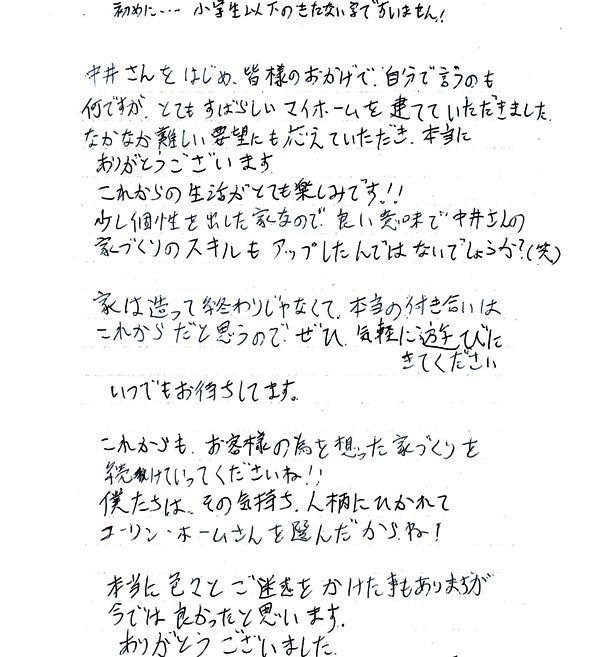 初めに… 小学生以下のきたない字ですいません!
中井さんをはじめ、皆様のおかげで、自分で言うのも
何ですが、とてもすばらしいマイホームを建てていただきました。
なかなか難しい要望にも応えていただき、本当に
ありがとうございます
これからの生活がとても楽しみです!!
少し個性を出した家なので、良い意味で中井さんの
家づくりのスキルもアップしたんではないでしょうか?(笑)
家は造って終わりじゃなくて、本当の付き合いは
これからだと思うので、ぜひ、気軽に遊びに
きてください
いつでもお待ちしてます。
これからも、お客様の為を想った家づくりを
続けていってくださいね!!
僕たちは、その気持ち、人柄にひかれて
ユーリン・ホームさんを選んだから、ね!
本当に色々とご迷惑をかけた事もありますが
今では良かったと思います。
ありがとうございました。